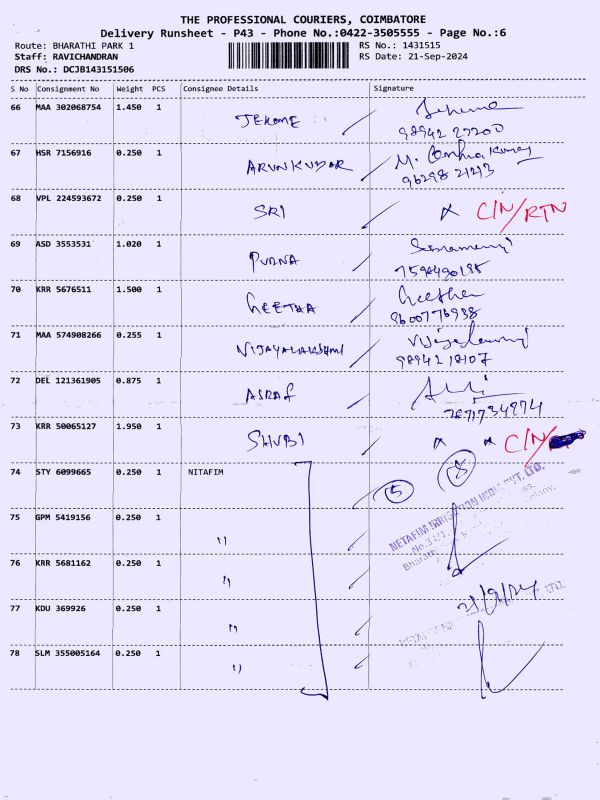 THE PROFESSIONAL COURIERS, COIMBATORE
Delivery Runsheet - P43 - Phone No.:0422-3505555 - Page No.:6
Route: BHARATHI PARK 1 RS No.: 1431515
Staff: RAVICHANDRAN RS Date: 21-Sep-2024
DRS No.: DCJB143151506
S No Consignment No Weight PCS Consignee Details Signature
66 MAA 302068754 1.450 1
JEROME
98942 22200
67 HSR 7156916 0.250 1
ARUNKUMAR
96298 21213
68 VPL 224593672 0.250 1
SRI x C/N/RTN
69 ASD 3553531 1.020 1
PURNA
70 KRR 5676511 1.500 1
GEETHA Geetha
9600776938
71 MAA 574908266 0.255 1
VIJAYALAKSHMI
98942 18107
72 DEL 121361905 0.875 1
ASRAF
73 KRR 50065127 1.950 1
SHUBI x x C/N/
74 STY 6099665 0.250 1 NITAFIM
5
NETAFIM IRRIGATION INDIA PVT. LTD.
75 GPM 5419156 0.250 1
"
76 KRR 5681162 0.250 1
"
21/9/24
77 KDU 369926 0.250 1
"
78 SLM 355005164 0.250 1
"